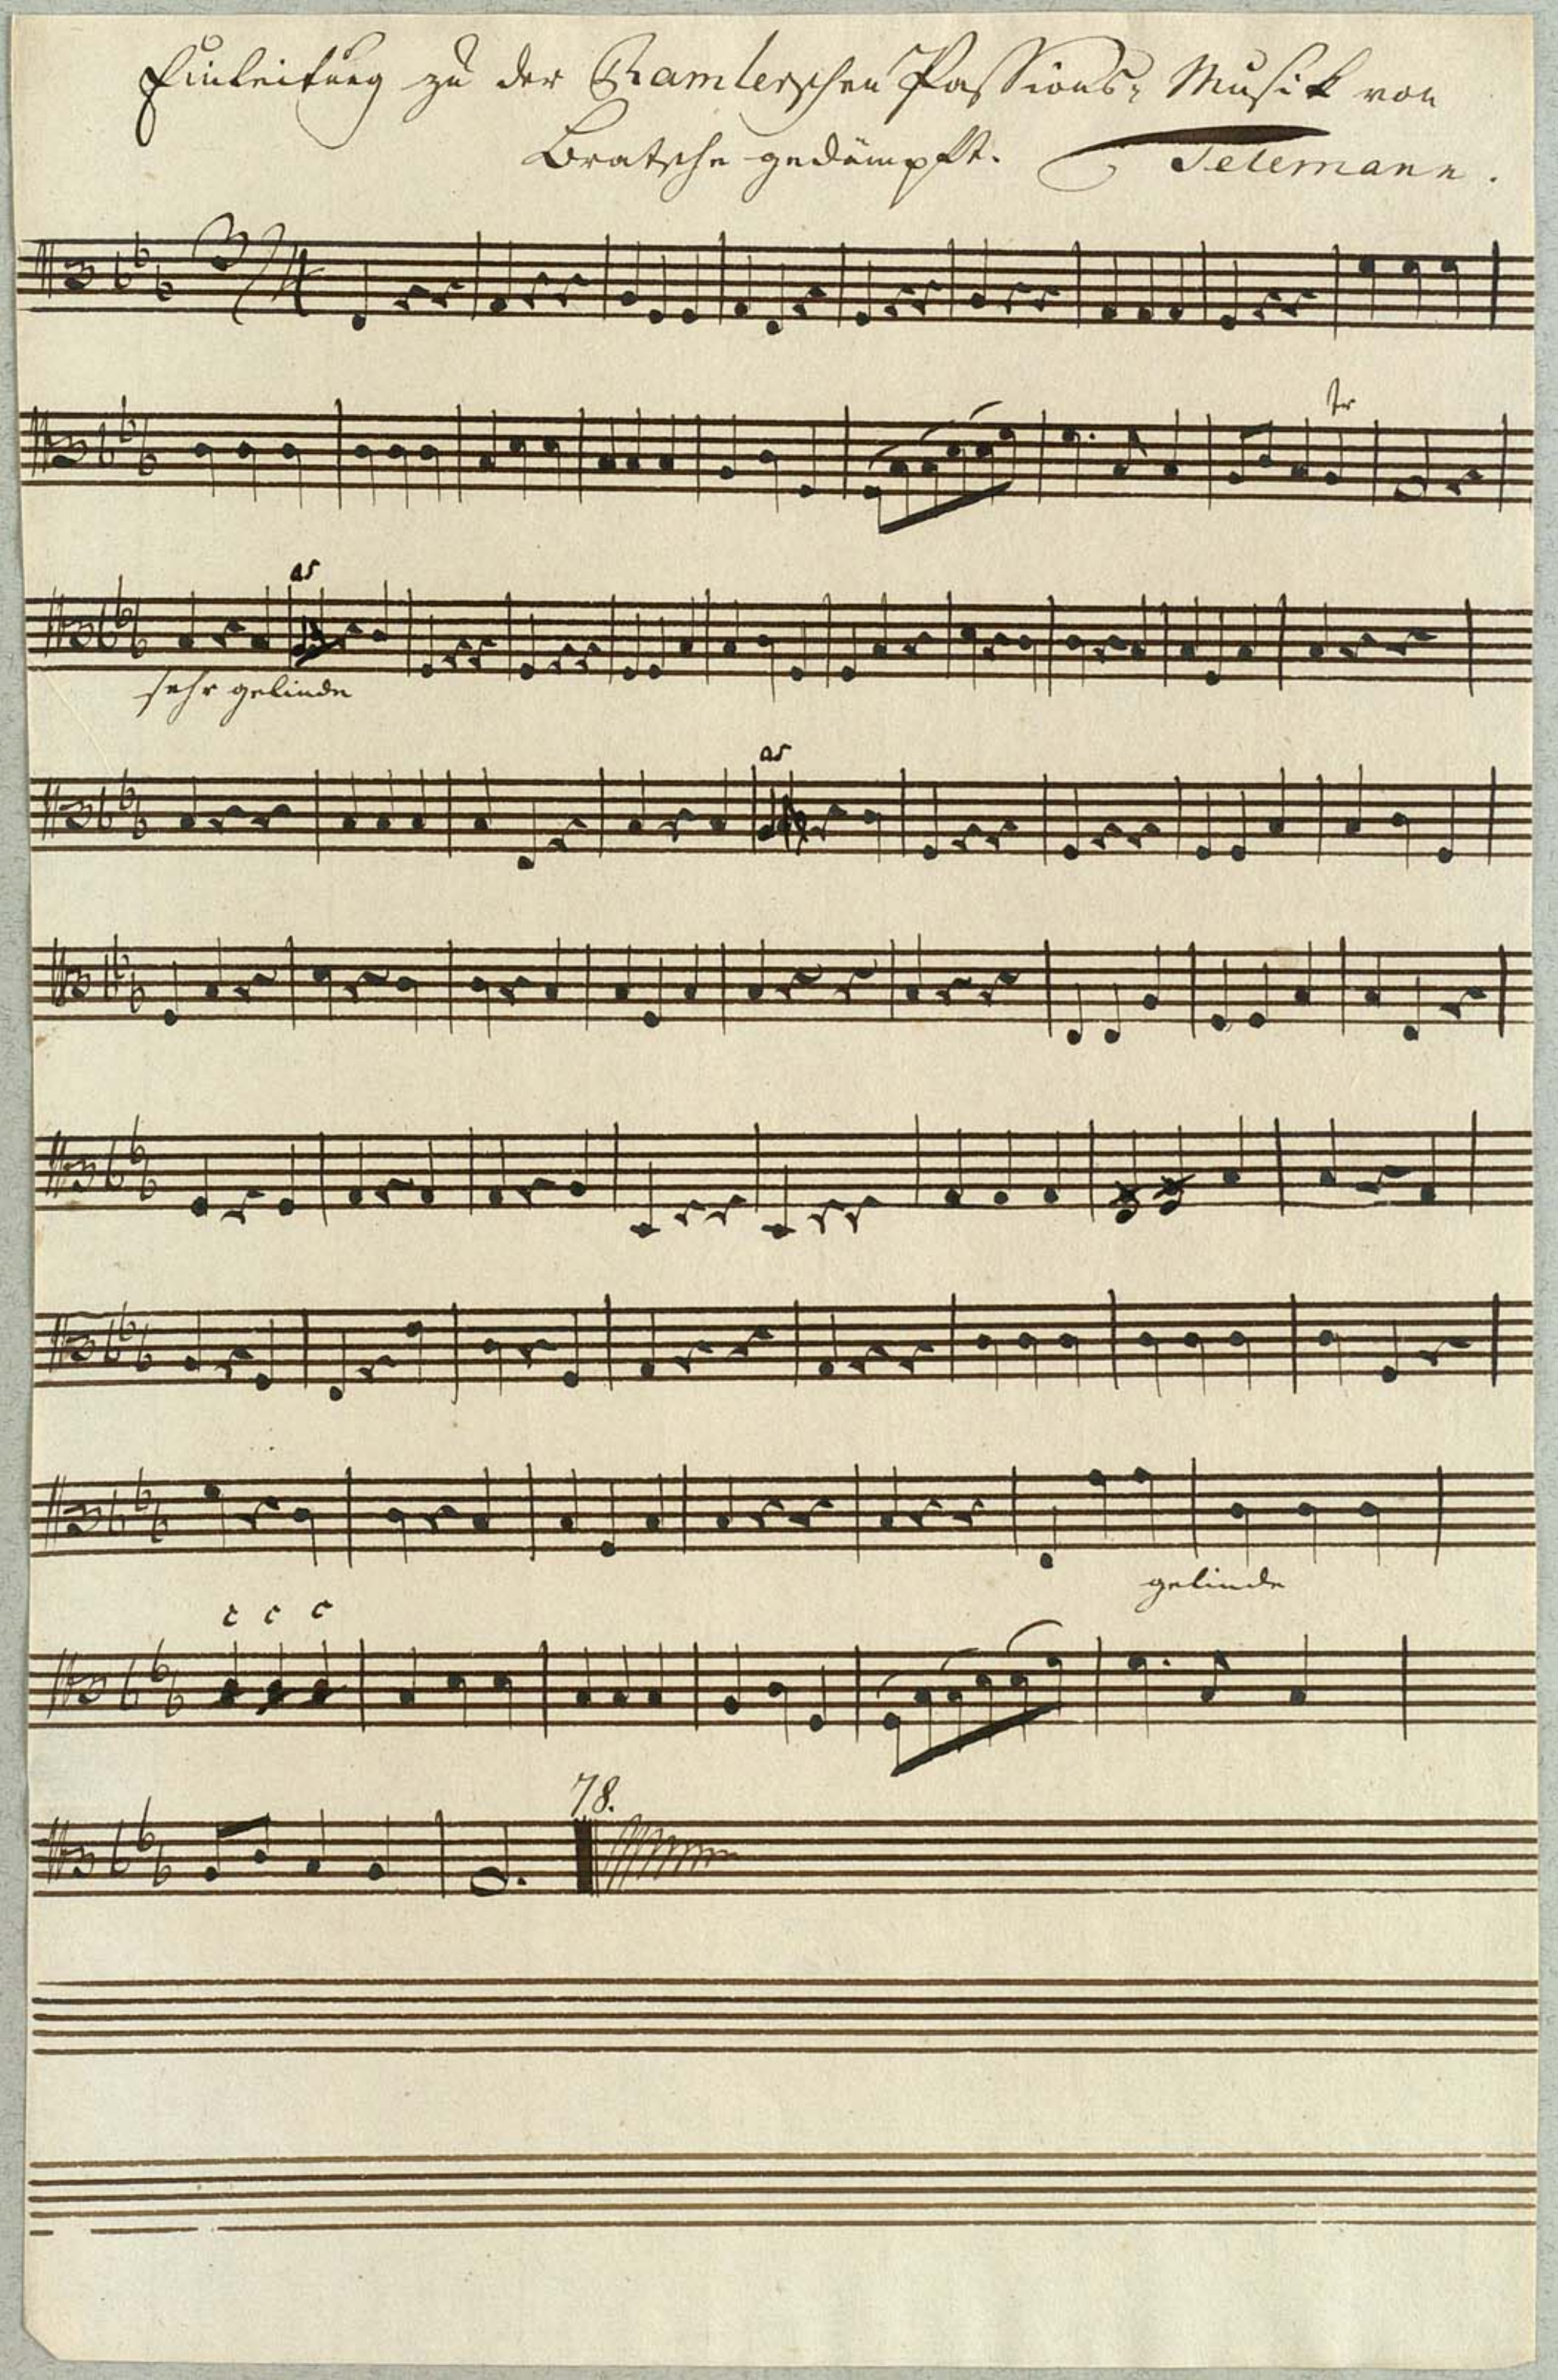 Einleitung zu der Ramlerschen Passions-Musik von
Bratsche gedämpft. Telemann.
3/4
tr
as
sehr gelinde
as
gelinde
c c c
78.